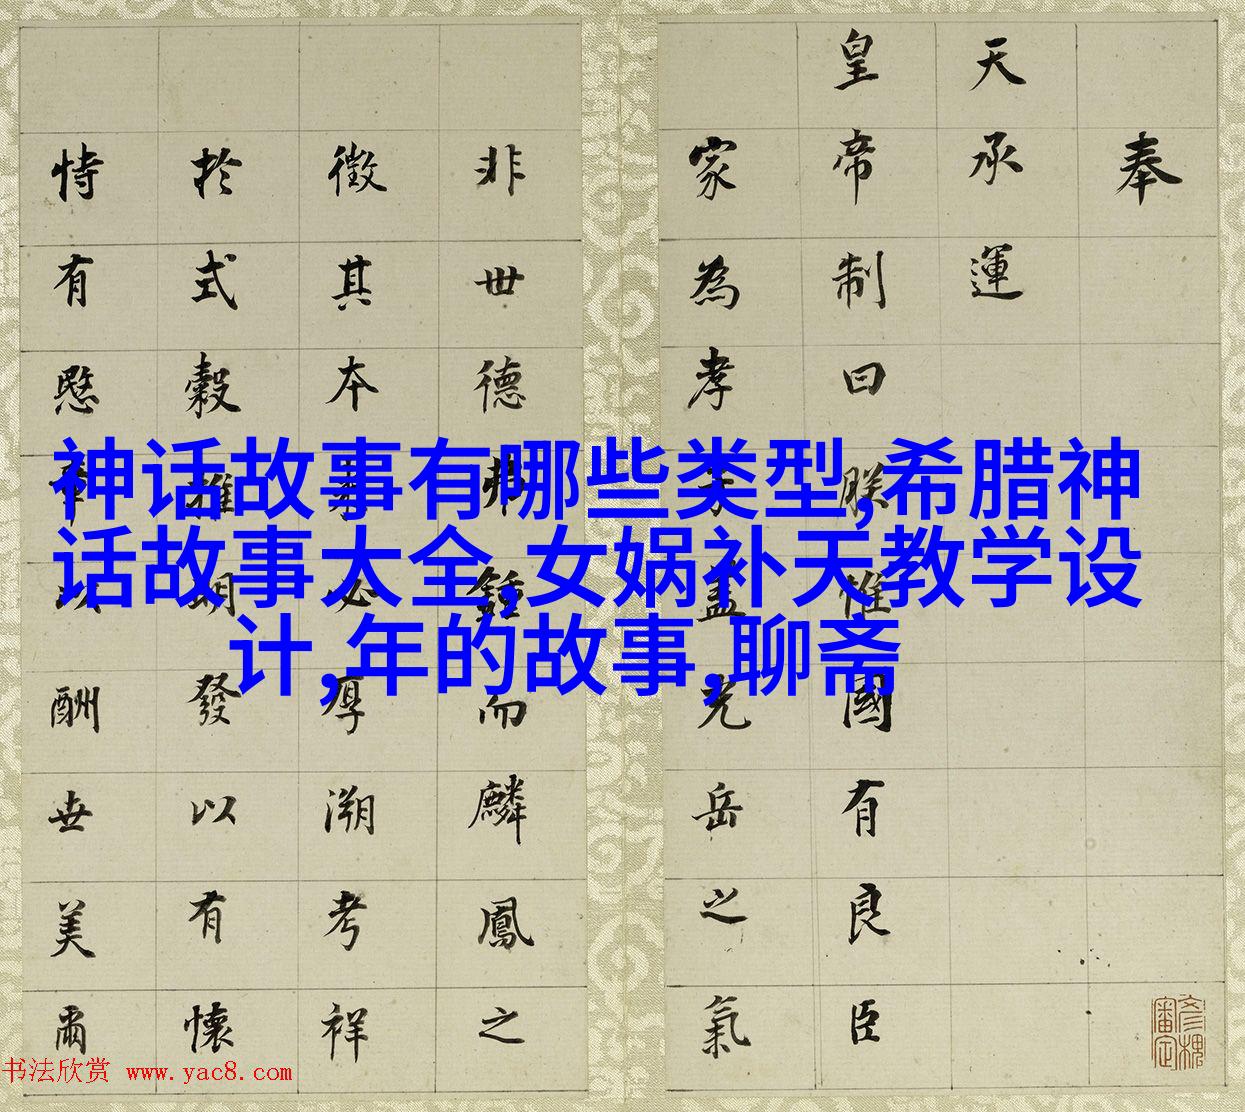 奉
天承運
皇帝制曰朕惟國有良臣
家為孝子蓋光岳之氣
非世德弗鍾而麟鳳之
徵其本必厚溯考祥
於式穀明發以有懷
特有愍章以酬世美爾
神话故事有哪些类型,希腊神
话故事大全,女娲补天教学设
计,年的故事,聊斋
书法欣赏 www.yac8.com